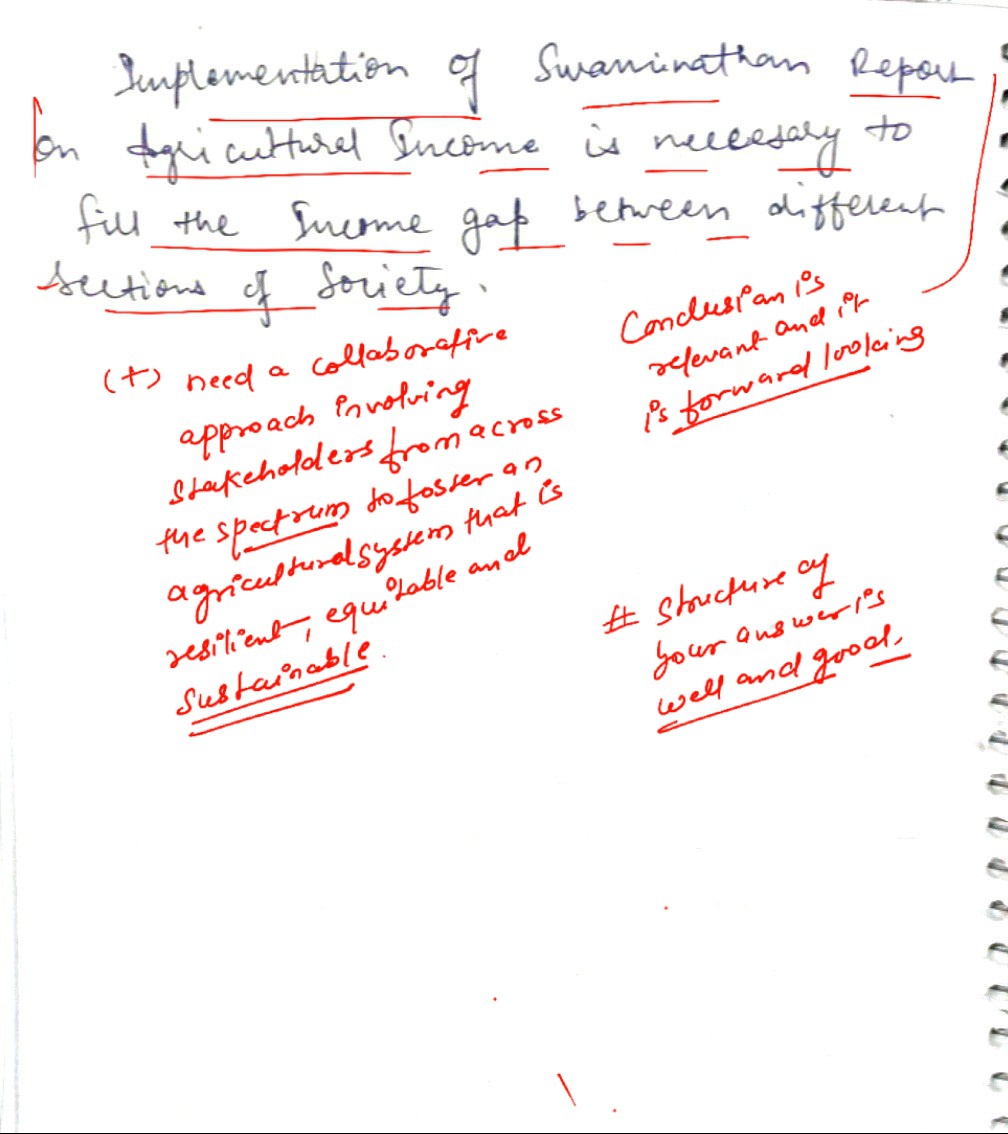 Implementation of Swaminathan Report
on Agricultural Income is necessary to
fill the Income gap between different
sections of Society.
(+) need a collaborative
approach involving
stakeholders from across
the spectrum to foster an
agricultural system that is
resilient, equitable and
sustainable.
Conclusion is
relevant and it
is forward looking
# Structure of
your answer is
well and good.